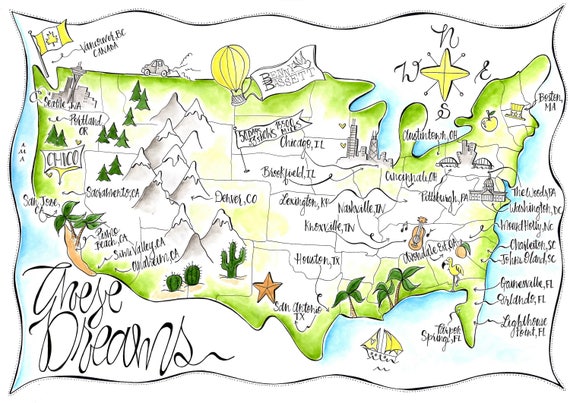 Vancouver, BC
CANADA
N
W
E
S
Seattle, WA
Portland
OR
CHICO
Sacramento, CA
San Jose,
Pismo
Beach, CA
Simi Valley, CA
Anaheim, CA
Denver, CO
Chicago, IL
Brookfield, IL
Lexington, KY
Nashville, TN
Knoxville, TN
Houston, TX
San Antonio
TX
Austintown, OH
Cincinnati, OH
Pittsburgh, PA
Avondale Est, GA
Boston,
MA
The Woods, PA
Washington, DC
Mount Holly, NC
Charleston, SC
Johns Island, SC
Gainesville, FL
Orlando, FL
Lighthouse
Point, FL
Tarpon
Springs, FL
These
Dreams